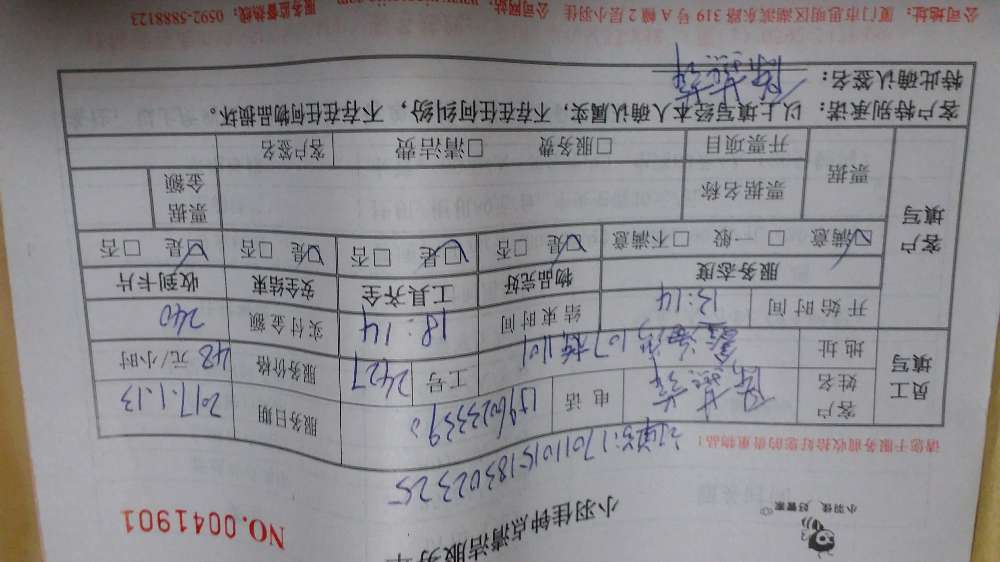 小羽佳 好管家
小羽佳钟点清洁服务单
NO.0041901
订单号:1701101518302325
请您于服务前收拾好您的贵重物品!
员工填写
客户姓名 电话 服务日期 2017.1.13
地址 107 1101 工号 2427 服务价格 48 元/小时
开始时间 13:14 结束时间 18:14 实付金额 240
客户填写
服务态度 物品完好 工具齐全 安全结束 收到卡片
☑满意 □一般 □不满意 ☑是 □否 ☑是 □否 ☑是 □否 ☑是 □否
票据 票据名称 票据金额
开票项目 □服务费 □清洁费 客户签名
客户特别承诺:以上填写经本人确认属实,不存在任何纠纷,不存在任何物品损坏。
特此确认签名:
公司地址:厦门市思明区湖滨东路 319 号 A 幢 2 层小羽佳 公司网站: 服务监督热线:0592-5888123